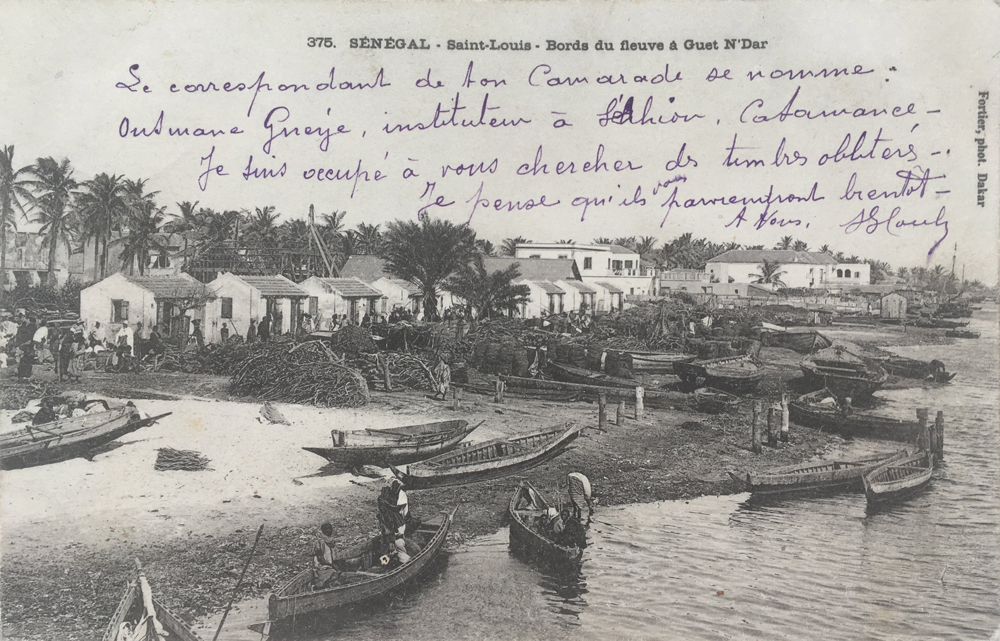 375. SÉNÉGAL - Saint-Louis - Bords du fleuve à Guet N'Dar
Le correspondant de ton Camarade se nomme :
Outmane Gueye, instituteur à Casamance -
Je suis occupé à vous chercher des timbres oblitérés -
Je pense qu'ils vous parviendront bientôt -
A Vous,
Fortier, phot. Dakar